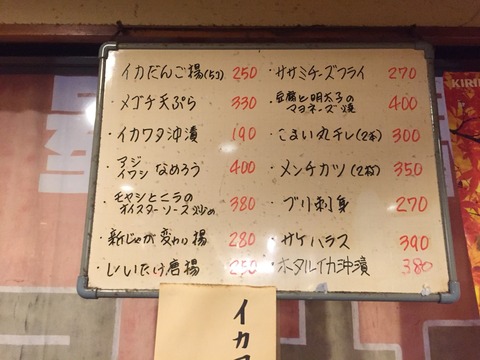 ・イカだんご揚(5コ) 250
・メゴチ天ぷら 330
・イカワタ沖漬 190
・アジ
イワシ なめろう 400
・モヤシとニラの
オイスターソース炒め 380
・新じゃが変わり揚 280
・しいたけ唐揚 250
・ササミチーズフライ 270
・豆腐と明太子の
マヨネーズ焼 400
・こまい丸干し(2本) 300
・メンチカツ(2枚) 350
・ブリ刺身 270
・サケハラス 390
・ホタルイカ沖漬 380
イカ
KIRIN